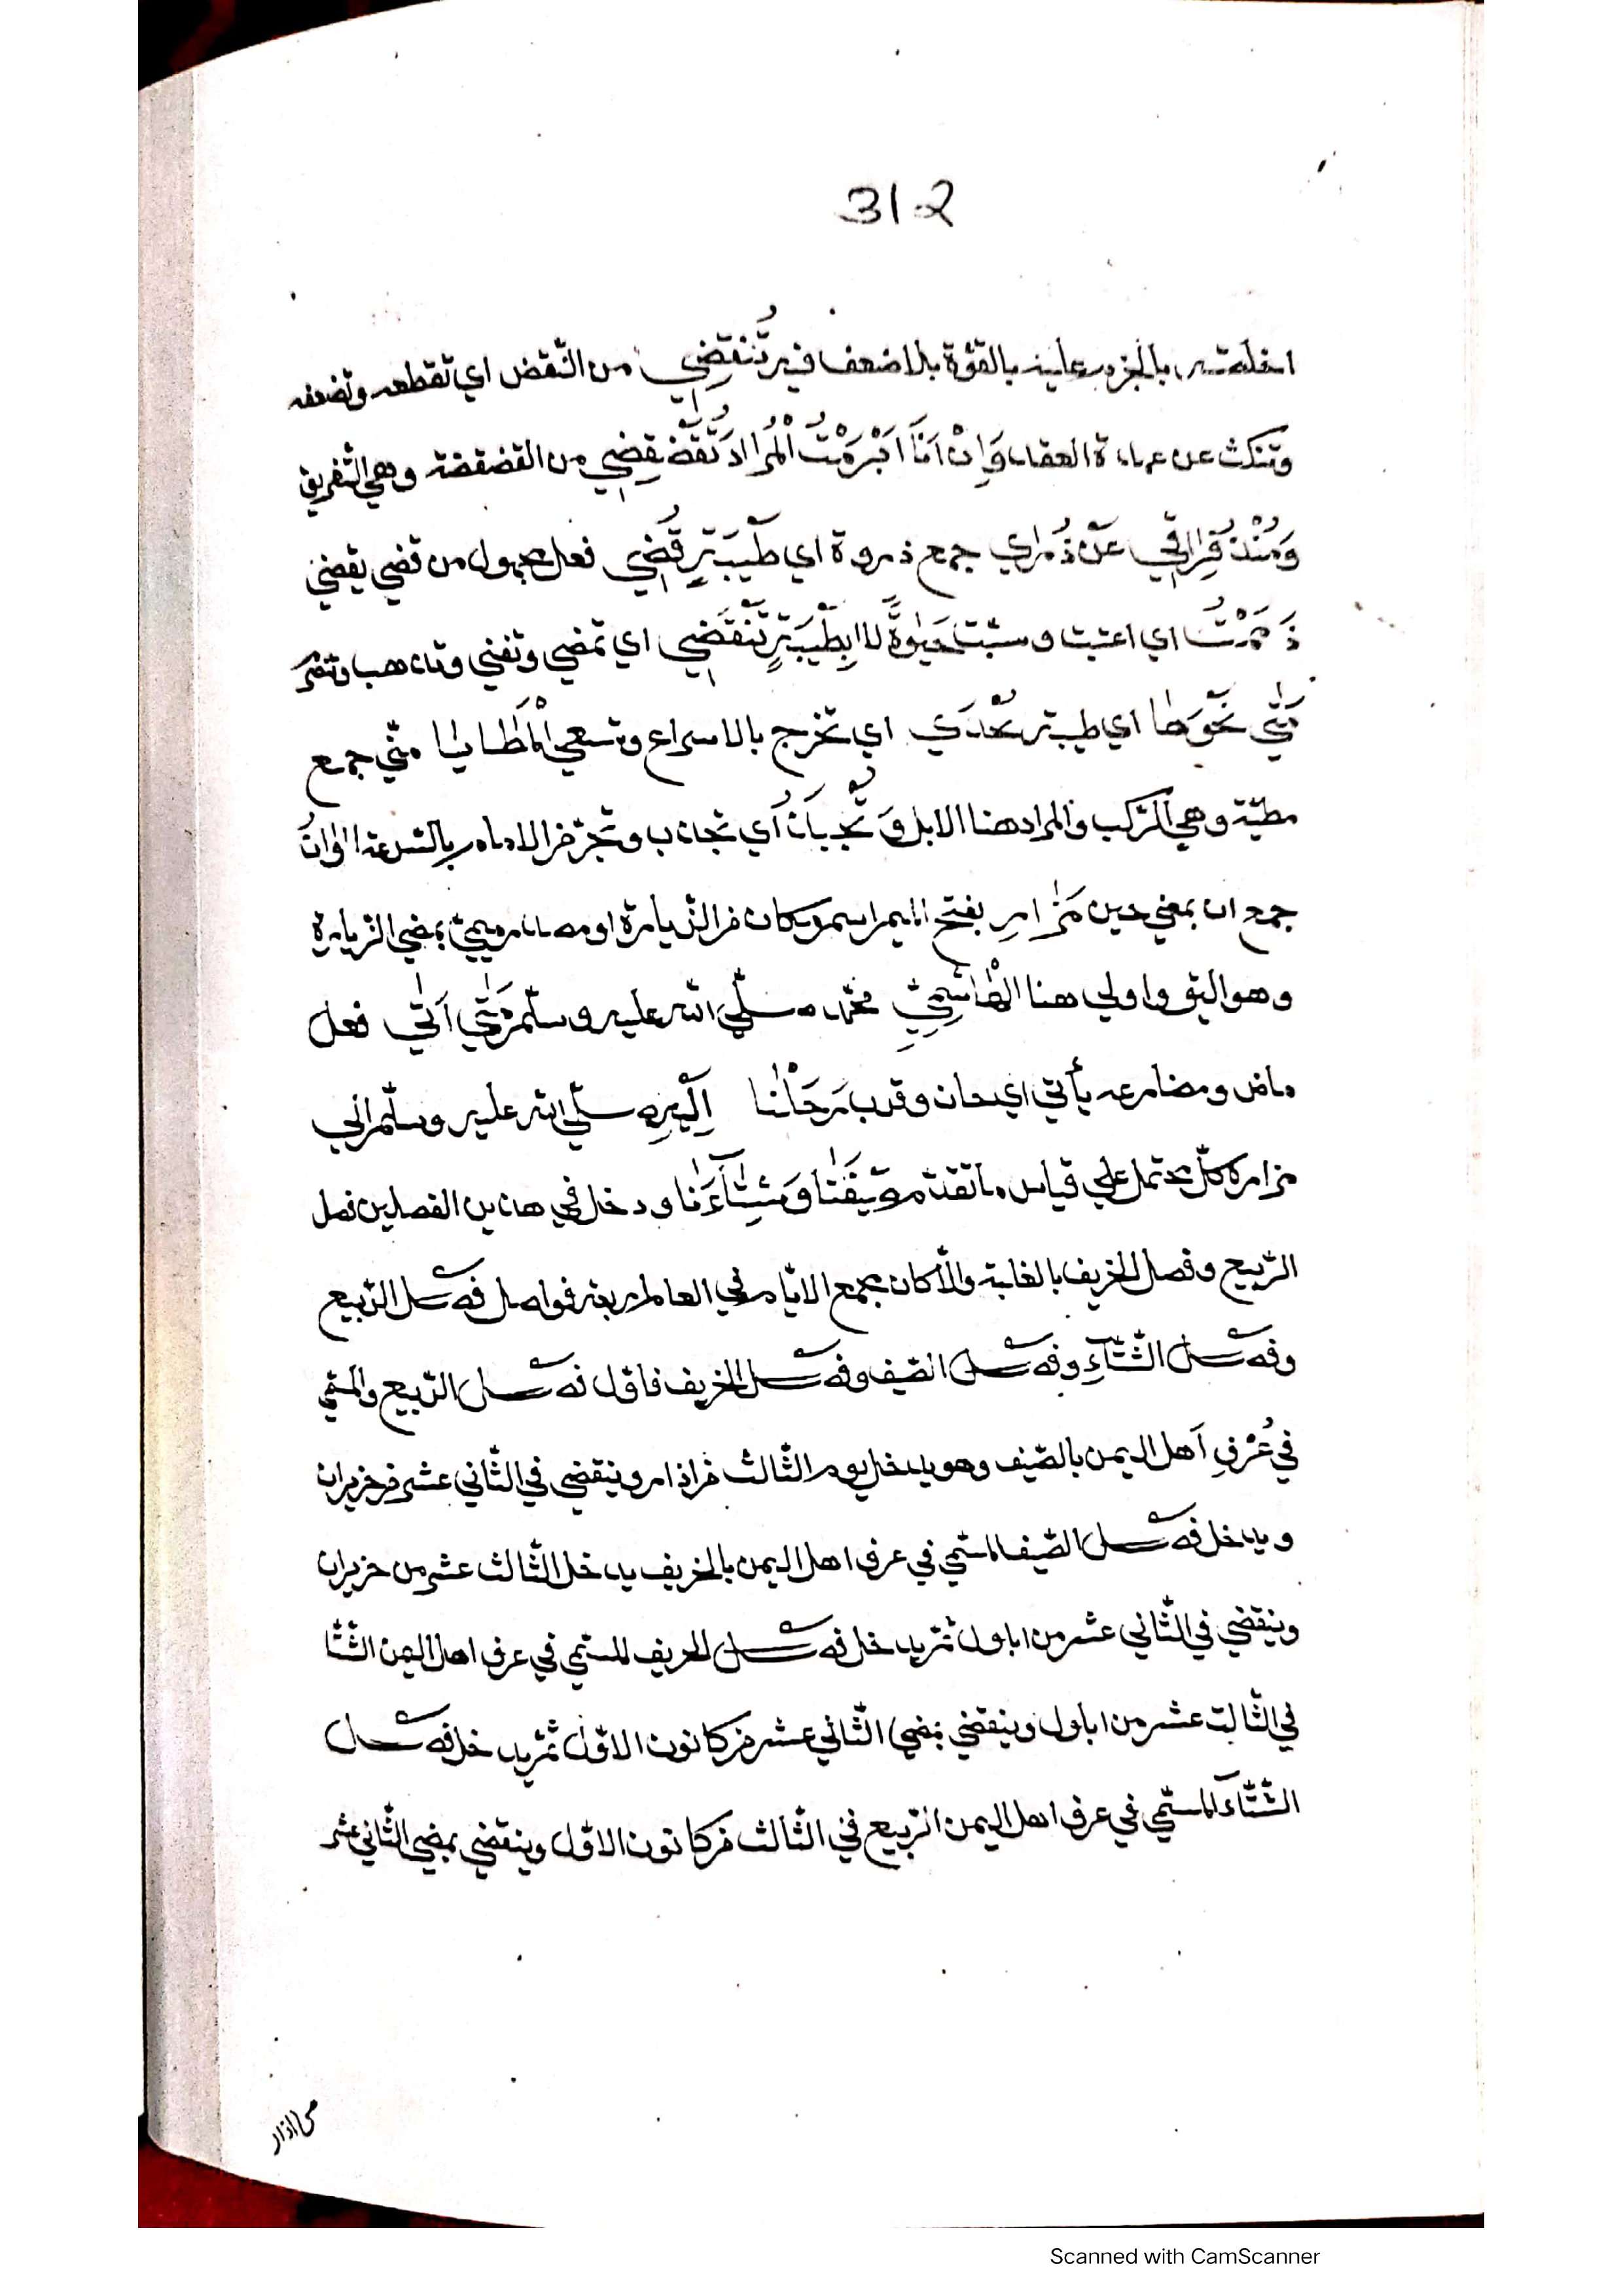 312
بالجزم عليه بالقوّة بلا ضعف فيه تُنقِضِي من النّقض اي تقطعه وتضعفه
وتنكث عن وَإِنْ أَنَا أَبْرَمْتُ الْمُرَادَ تُقَضْقِضِي من القضقضة وهي التّفريق
وَمُنْذُ فِرَاقِي عَنْ ذُرَاي جمع ذروة اي طَيْبَةٍ قُضِي فعل مجهول من قضي يقضي
ذَمَمْتُ اي اعتبت وسببت حَيٰوةً لا بِطَيْبَةٍ تَنْقَضِي اي تمضي وتفني وتذهب وتمرّ
مَتٰي نَحْوَهَا اي طيبة تَخْدِي اي تخرج بالاسراع وتسعي الْمَطَايَا متٰي جمع
مطيّة وهي المركب والمراد هنا الابل وَتَجْذِبَانُ أي تجاذب وتجرّ من الامام بالسّرعة اٰوَانُ
جمع ان بمعني حين مَزَارِ بفتح الميم اسم مكان من الزّيارة او مصدر ميميّ بمعني الزّيارة
وهو اليق واولي هنا الْهَاشِمِيِّ محمّد صلّي الله عليه وسلّم مَتٰي أَتٰي فعل
ماض ومضارعه يأتي اي حان وقرب رَحَلْنَا إِلَيْهِ صلّي الله عليه وسلّم الي
مزاره كلّ محتمل علي قياس ما تقدّم صَيْفَنَا وَشِتَاءَنَا ودخل في هذين الفصلين فصل
الرّبيع وفصل الخريف بالغلبة والّا كان مجمع الايّام في العالم اربعة فواصل فصل الرّبيع
وفصل الشّتآءِ وفصل الصّيف وفصل الخريف فاقول فصل الرّبيع والمسمّي
في عُرْفِ أهل اليمن بالصّيف وهو يدخل يوم الثّالث من اذار وينقضي في الثّاني عشر من حزيران
ويدخل فصل الصّيف المسمّي في عرف اهل اليمن بالخريف يدخل الثّالث عشر من حزيران
وينقضي في الثّاني عشر من ايلول ثمّ يدخل فصل الخريف المسمّي في عرف اهل اليمن الشّتا
في الثّالث عشر من ايلول وينقضي بمضي الثّاني عشر من كانون الاوّل ثمّ يدخل فصل
الشّتآء المسمّي في عرف اهل اليمن الرّبيع في الثّالث من كانون الاوّل وينقضي بمضي الثّاني عشر
من اذار
Scanned with CamScanner